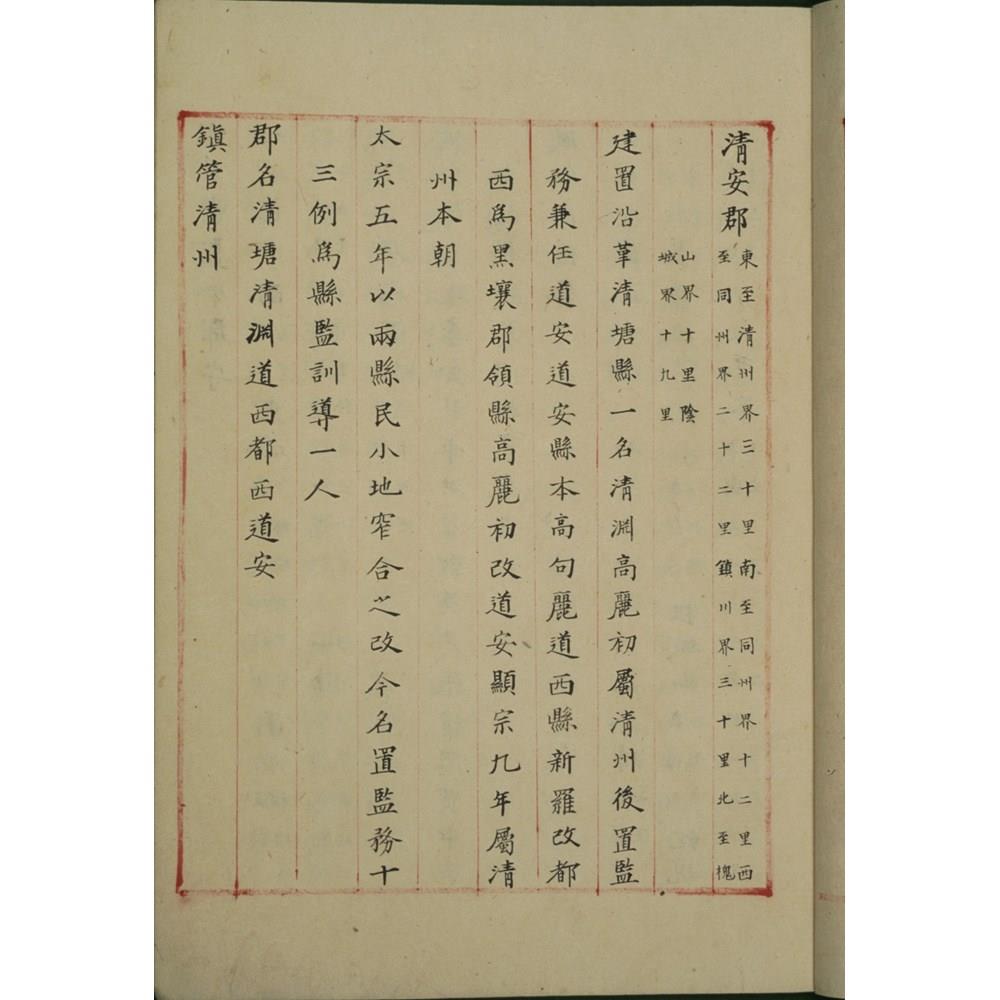 清安郡
東至清州界三十里南至同州界十二里西
至同州界二十二里鎮川界三十里北至槐
山界十里陰
城界十九里
建置沿革清塘縣一名清淵高麗初屬清州後置監
務兼任道安道安縣本高句麗道西縣新羅改都
西爲黑壤郡領縣高麗初改道安顯宗九年屬清
州本朝
太宗五年以兩縣民小地窄合之改今名置監務十
三例爲縣監訓導一人
郡名清塘清淵道西都西道安
鎮管清州